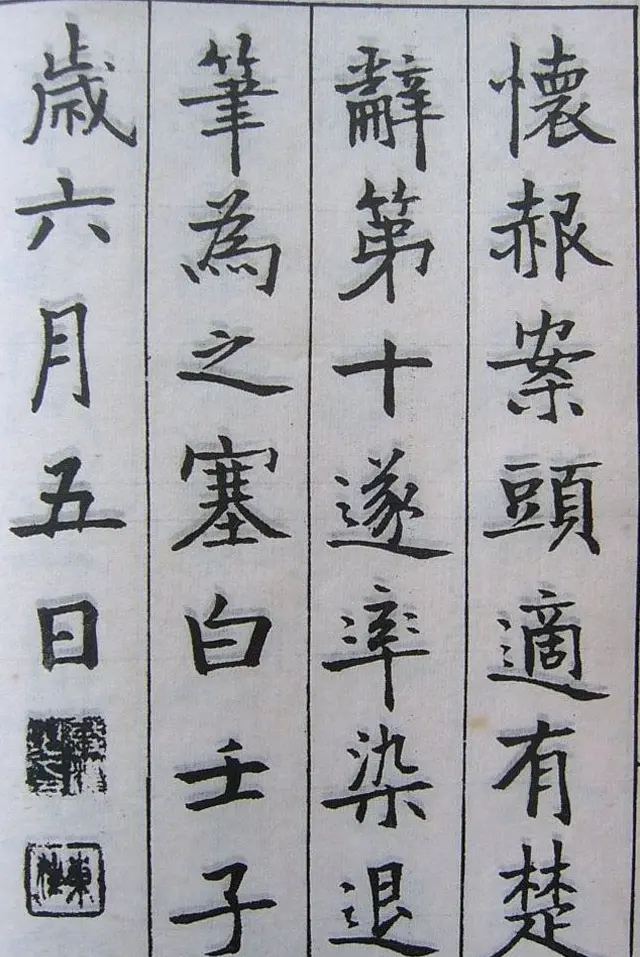 懷赧案頭適有楚
辭第十遂率染退
筆為之塞白壬子
歲六月五日